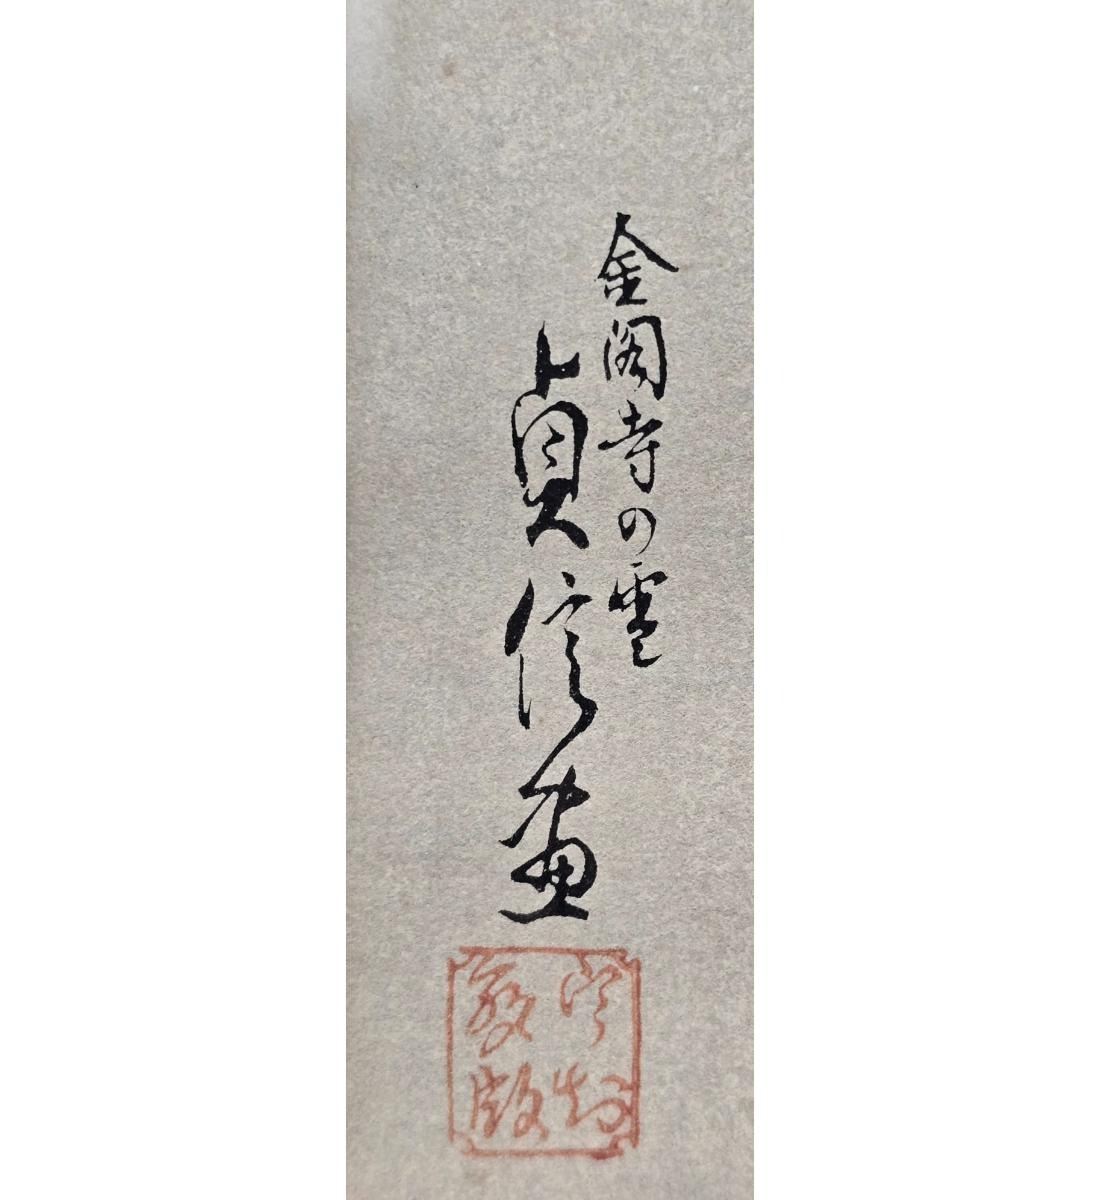 金閣寺の雪
貞信画